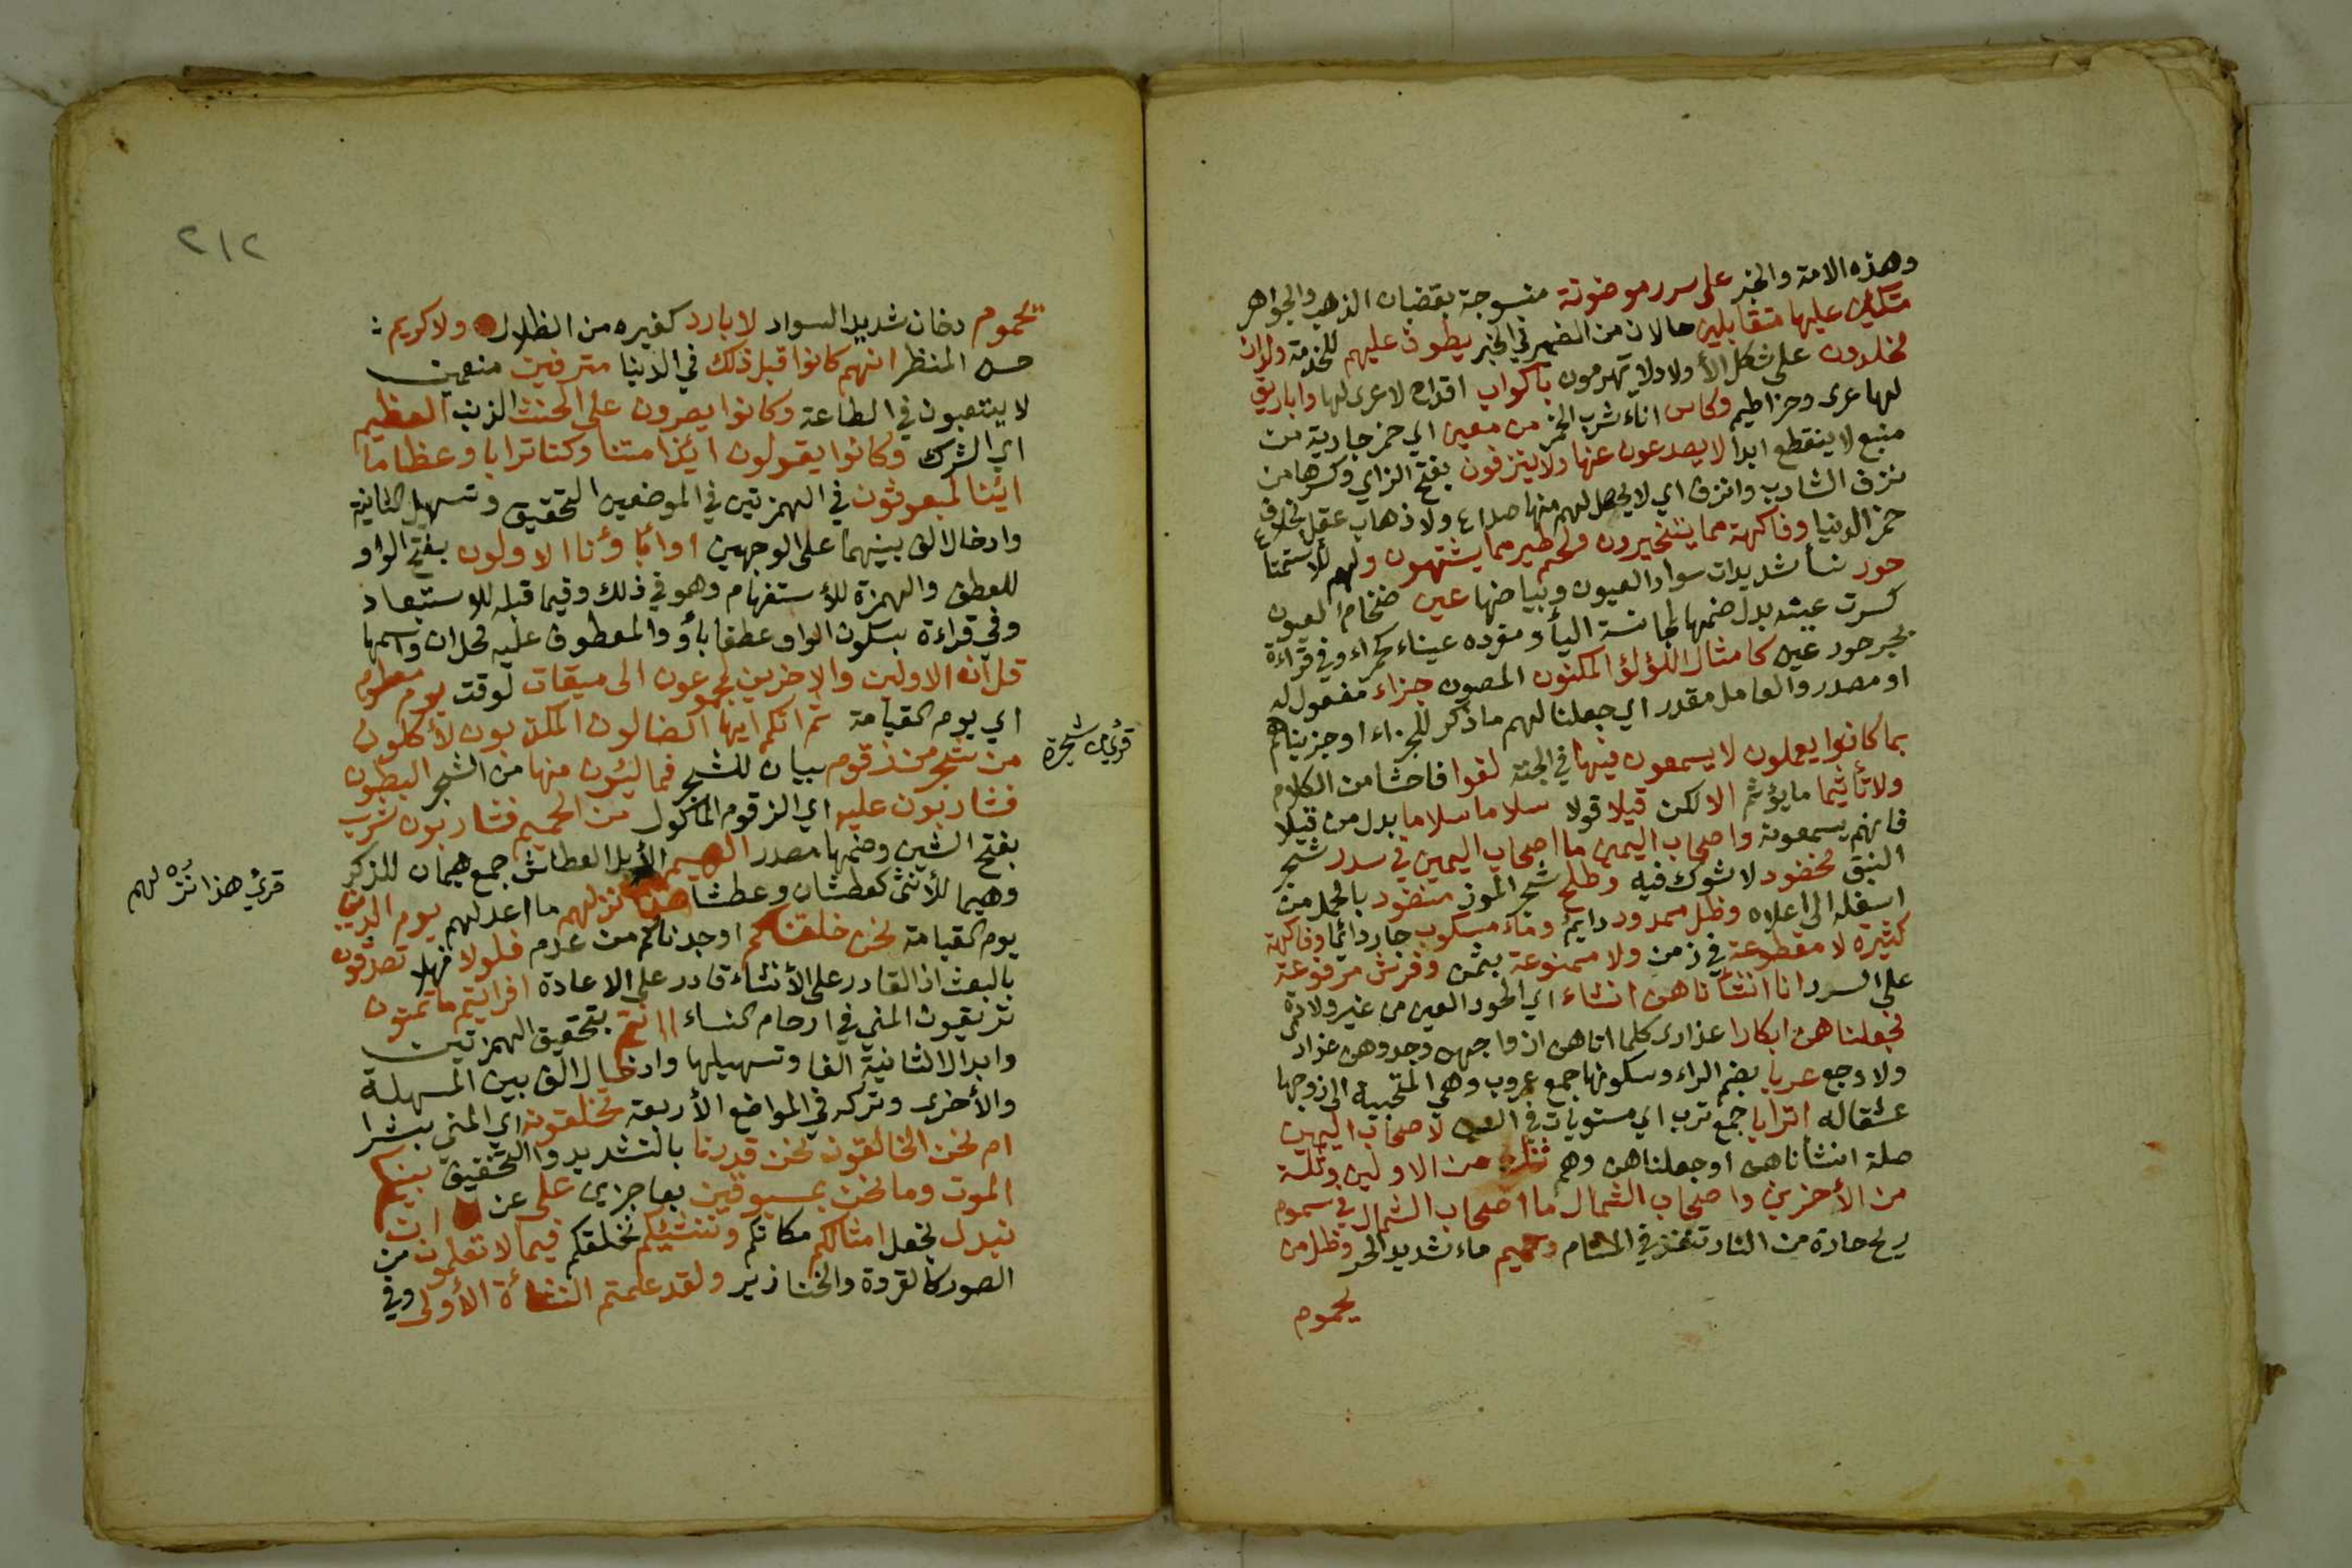 وهذه الامة والخبر على سرر موضونة منسوجة بقضبان الذهب والجواهر
متكئين عليها متقابلين حالان من الضمير في الخبر يطوف عليهم للخدمة ولدان
مخلدون على شكل الأولاد لا يهرمون بأكواب اقداح لا عرى لها واباريق
لها عرى وخراطيم وكاس اناء شرب الخمر من معين اي خمر جارية من
منبع لا ينقطع ابدا لا يصدعون عنها ولا ينزفون بفتح الزاي وكسرها من
نزف الشارب وانزف اي لا يحصل لهم منها صداع ولا ذهاب عقل بخلاف
خمر الدنيا وفاكهة مما يتخيرون ولحم طير مما يشتهون ولهم للاستمتاع
حور نسأ شديدات سواد العيون وبياضها عين ضخام العيون
كسرت عينه بدل ضمها لمجانسة اليأ ومفرده عيناء كحمراء وفي قراءة
بجر حور عين كامثال اللؤلؤ المكنون المصون جزاء مفعول له
او مصدر والعامل مقدر اي جعلنا لهم ما ذكر للجزاء او جزيناهم
بما كانوا يعملون لا يسمعون فيها في الجنة لغوا فاحشا من الكلام
ولا تأثيما ما يؤثم الا لكن قيلا قولا سلاما سلاما بدل من قيلا
فانهم يسمعونه واصحاب اليمين ما اصحاب اليمين في سدر شجر
النبق مخضود لا شوك فيه وطلح شجر الموز منضود بالحمل من
اسفله الى اعلاه وظل ممدود دايم وماء مسكوب جار دائما وفاكهة
كثيرة لا مقطوعة في زمن ولا ممنوعة بثمن وفرش مرفوعة
على السرر انا انشأناهن انشاء اي الحور العين من غير ولادة
فجعلناهن ابكارا عذارى كلما اتاهن ازواجهن وجدوهن عذارى
ولا وجع عربا بضم الراء وسكونها جمع عروب وهي المتحببة الى زوجها
عشقا له اترابا جمع ترب اي مستويات في السن لاصحاب اليمين
صلة انشأناهن او جعلناهن وهم ثلة من الاولين وثلة
من الأخرين واصحاب الشمال ما اصحاب الشمال في سموم
ريح حارة من النار تنفذ في المسام وحميم ماء شديد الحر وظل من
يحموم
٢١٢
يحموم دخان شديد السواد لا بارد كغيره من الظلال ولا كريم
حسن المنظر انهم كانوا قبل ذلك في الدنيا مترفين منعمين
لا يتعبون في الطاعة وكانوا يصرون على الحنث الذنب العظيم
اي الشرك وكانوا يقولون ائذا متنا وكنا ترابا وعظاما
ائنا لمبعوثون في الهمزتين في الموضعين التحقيق وتسهيل الثانية
وادخال الف بينهما على الوجهين اوآباؤنا الاولون بفتح الواو
للعطف والهمزة للأستفهام وهو في ذلك وفيما قبله للاستبعاد
وفي قراءة بسكون الواو عطفا بأو والمعطوف عليه محل ان واسمها
قل ان الاولين والاخرين لمجموعون الى ميقات لوقت يوم معلوم
اي يوم القيامة ثم انكم ايها الضالون المكذبون لأكلون
من شجر من زقوم بيان للشجر فمالئون منها من الشجر البطون
فشاربون عليه اي الزقوم الماكول من الحميم فشاربون شرب
بفتح الشين وضمها مصدر الهيم الأبل العطاش جمع هيمان للذكر
وهيما للأنثى كعطشان وعطشا هذا نزلهم ما اعد لهم يوم الدين
يوم القيامة نحن خلقناكم اوجدناكم من عدم فلولا فهلا تصدقون
بالبعث اذ القادر على الأنشاء قادر على الاعادة افرايتم ما تمنون
تريقون المني في ارحام النساء اانتم بتحقيق الهمزتين
وابدال الثانية الفا وتسهيلها وادخال الف بين المسهلة
والأخرى وتركه في المواضع الأربعة تخلقونه اي المني بشرا
ام نحن الخالقون نحن قدرنا بالتشديد والتخفيف بينكم
الموت وما نحن بمسبوقين بعاجزين على عن ان
نبدل نجعل امثالكم مكانكم وننشئكم نخلقكم فيما لا تعلمون من
الصور كالقردة والخنازير ولقد علمتم النشأة الأولى وفي
قرئ من شجرة
قرئ هذا نزلهم